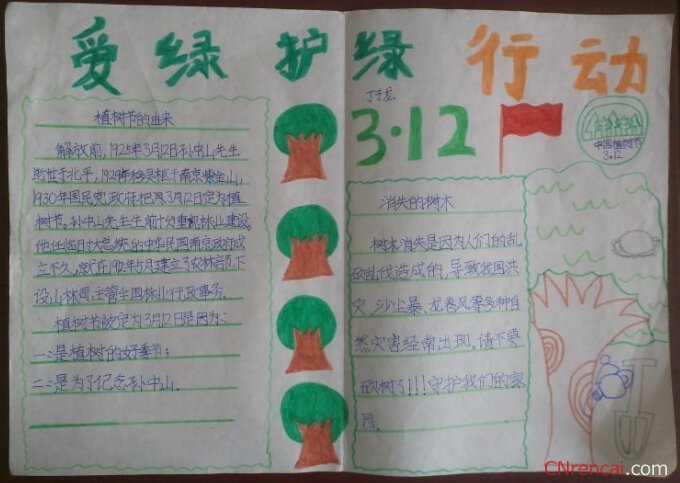 爱绿护绿行动
丁子龙
3·12
中国植树节
3.12
植树节的由来
解放前，1925年3月12日孙中山先生
逝世于北平，1929年移灵柩于南京紫金山，
1930年国民党政府把原3月12日定为植
树节。孙中山先生生前十分重视林业建设。
他任临时大总统的中华民国南京政府成
立不久，就在1912年5月建立了农林部，下
设山林司，主管全国林业行政事务。
植树节被定为3月12日是因为：
一：是植树的好季节；
二：是为了纪念孙中山。
消失的树木
树木消失是因为人们的乱
砍乱伐造成的，导致我国洪
灾、沙尘暴、龙卷风等多种自
然灾害经常出现，请不要
砍树了!!!守护我们的家
园。
CNrencai.com